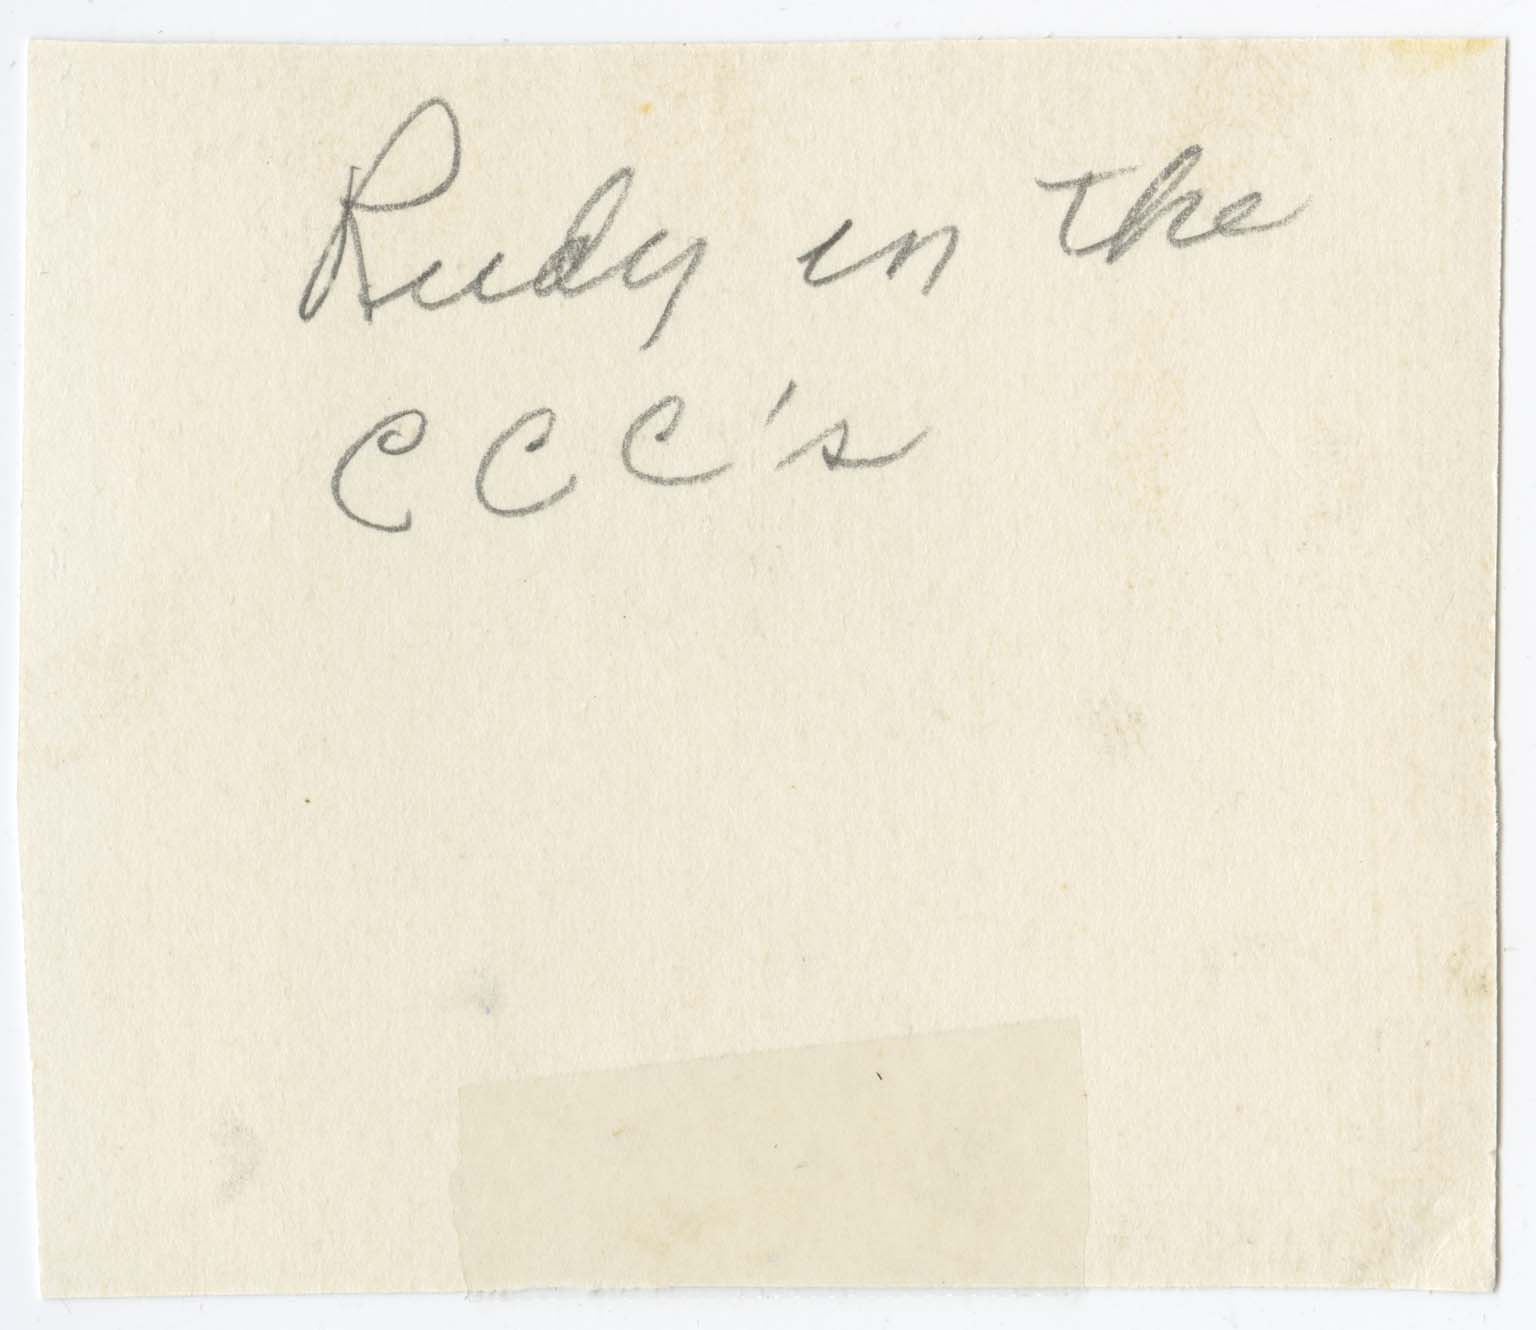 Rudy in the
CCC's